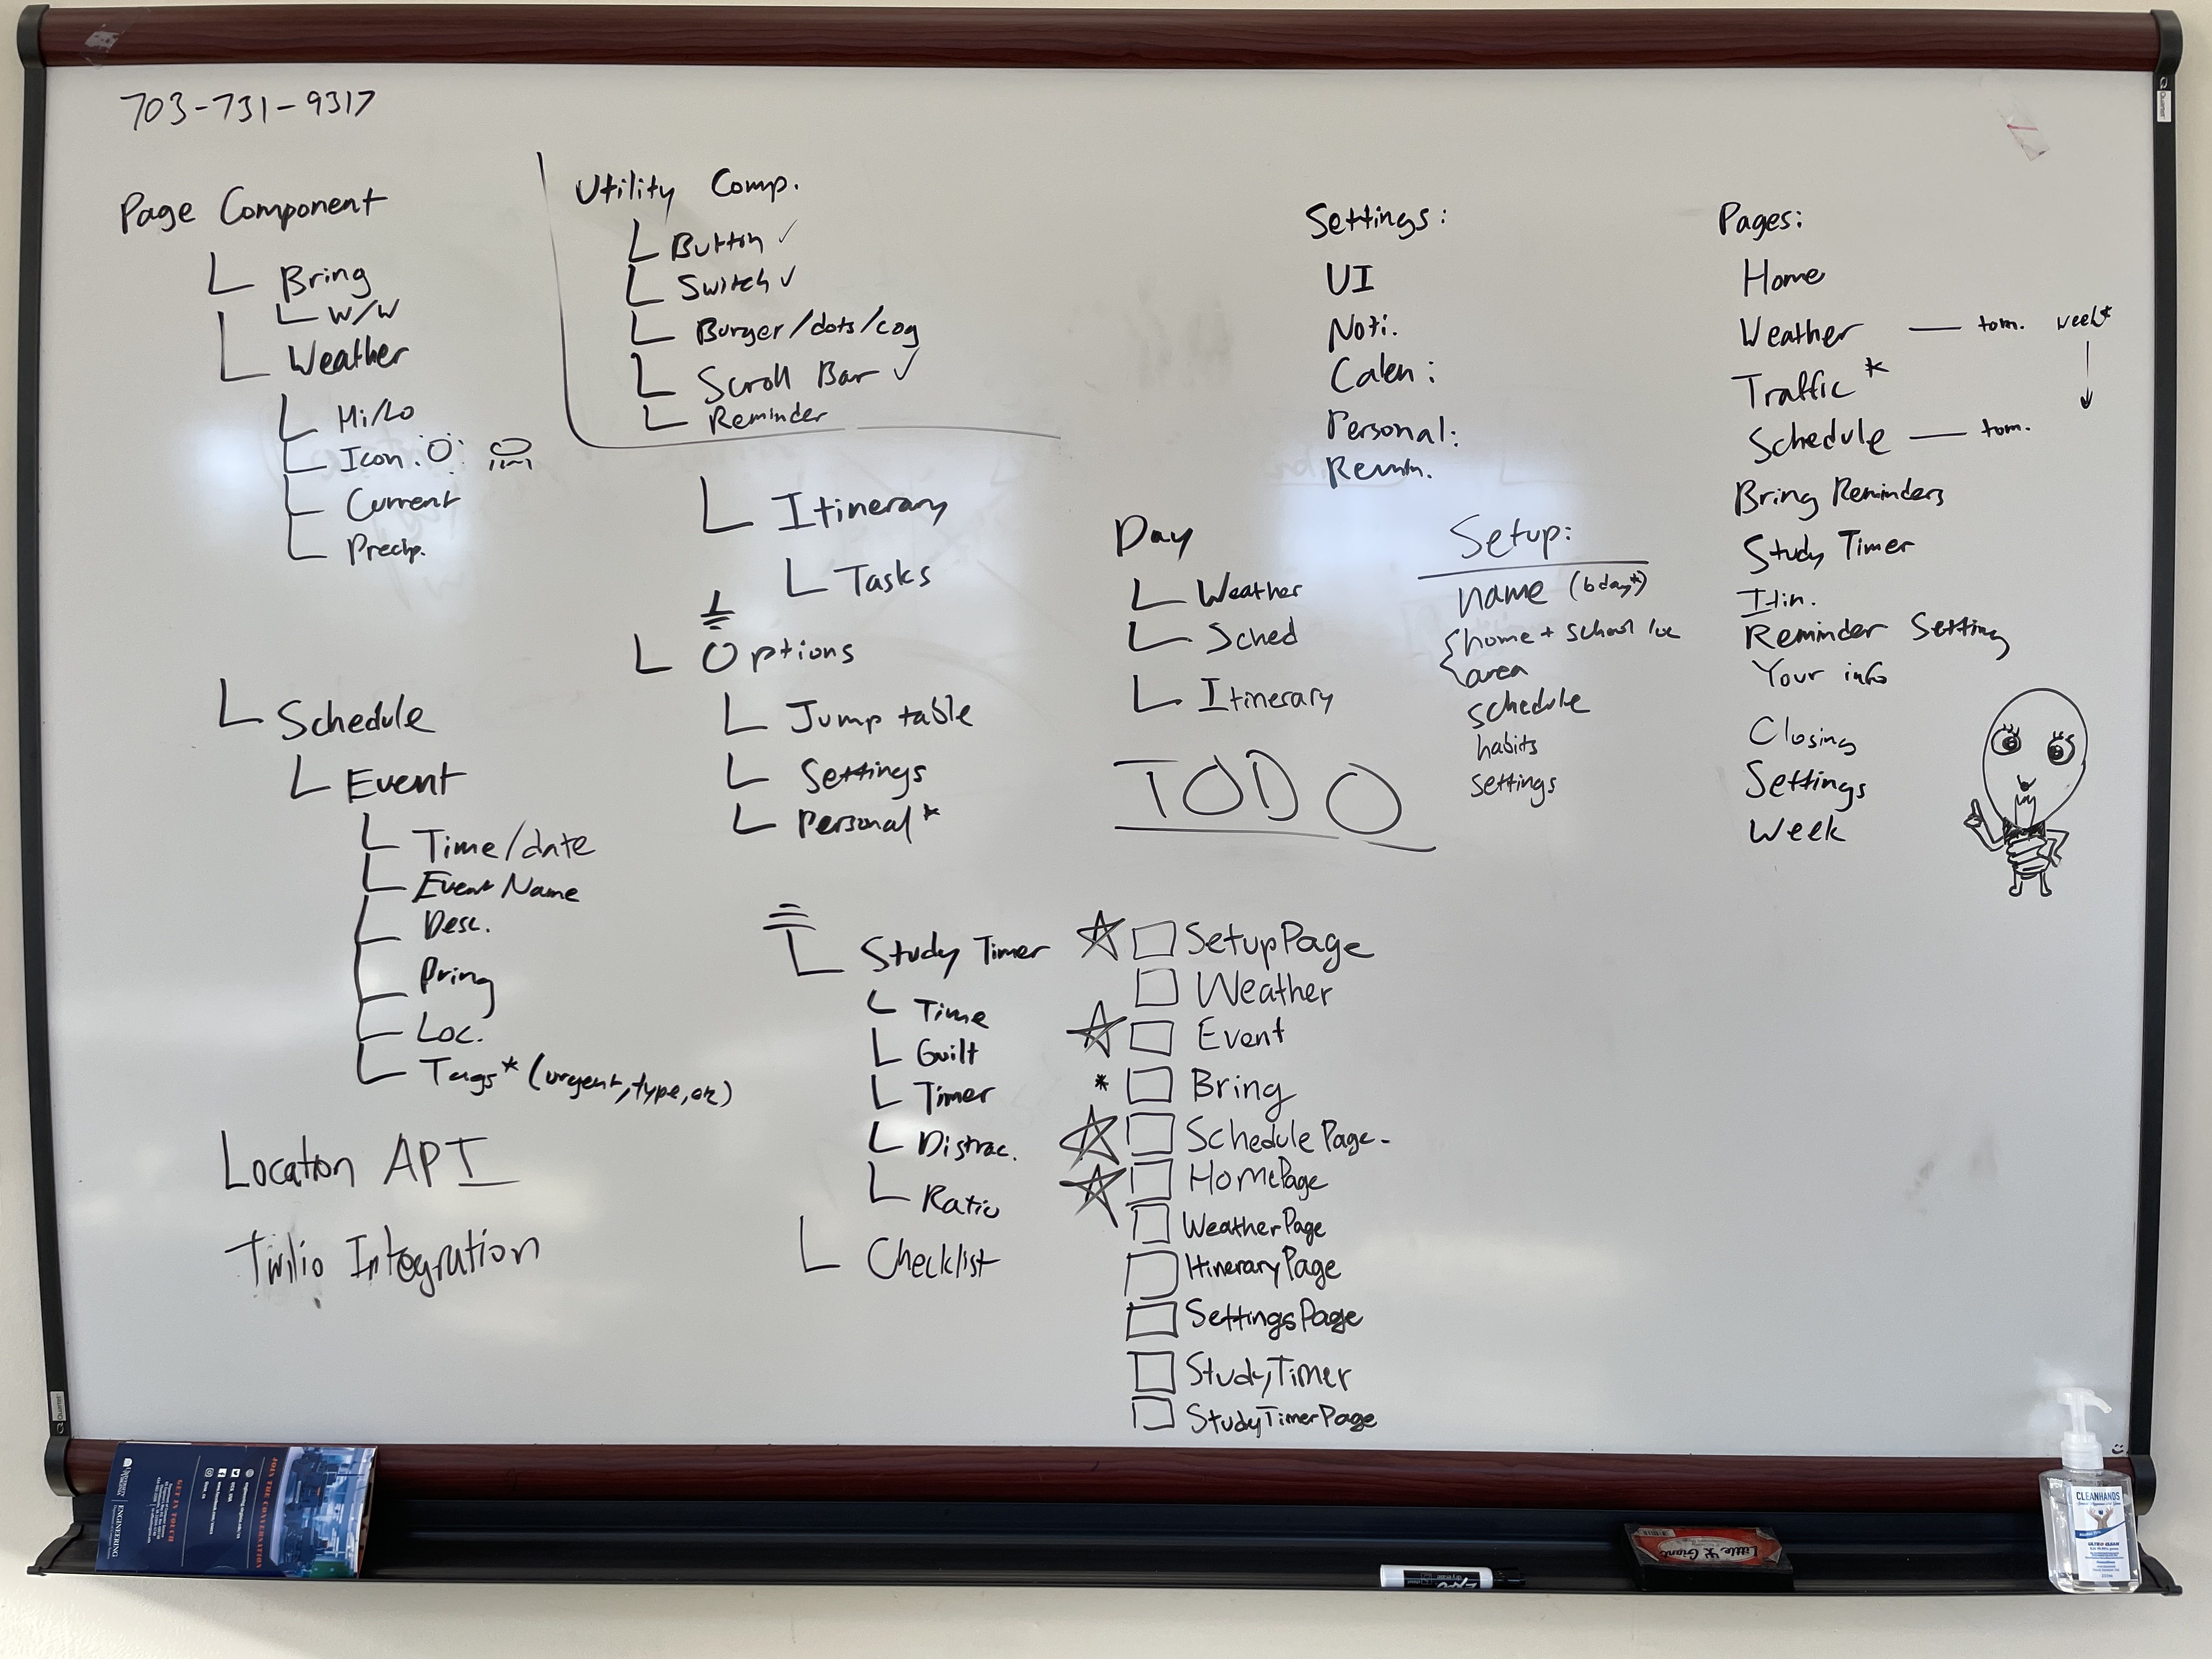 703-731-9317
Page Component
Bring
W/W
Weather
Hi/Lo
Icon
Current
Precip.
Schedule
Event
Time/date
Event Name
Desc.
Bring
Loc.
Tags* (urgent, type, etc)
Location API
Twilio Integration
Utility Comp.
Button ✓
Switch ✓
Burger/dots/cog
Scroll Bar ✓
Reminder
Itinerary
Tasks
Options
Jump table
Settings
Personal*
Study Timer
Time
Guilt
Timer
Distrac.
Ratio
Checklist
Settings:
UI
Noti.
Calen:
Personal:
Remin.
Day
Weather
Sched
Itinerary
Setup:
name (bday*)
home + school loc
area
schedule
habits
settings
TODO
SetupPage
Weather
Event
* Bring
Schedule Page-
HomePage
WeatherPage
ItineraryPage
SettingsPage
StudyTimer
StudyTimerPage
Pages:
Home
Weather — tom. week*
Traffic *
Schedule — tom.
Bring Reminders
Study Timer
Itin.
Reminder Setting
Your info
Closing
Settings
Week
Quartet
Quartet
JOIN THE CONVERSATION
GET IN TOUCH
ENGINEERING
EXPO
Little Giant
CLEANHANDS